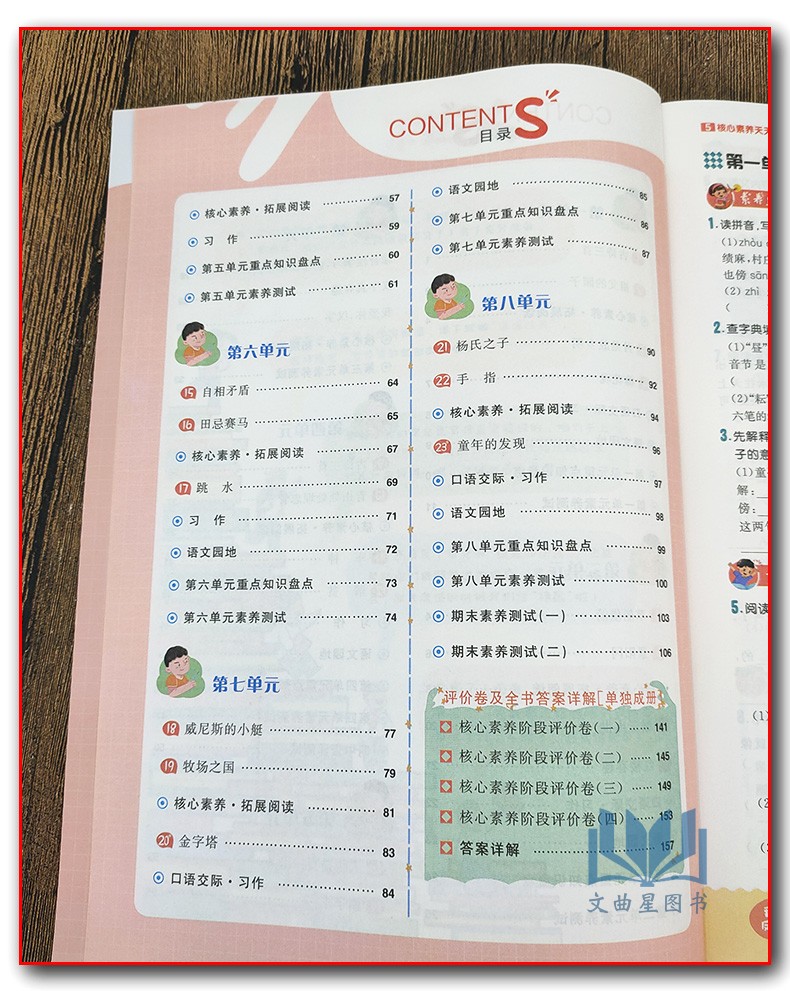 CONTENTS
目录
核心素养·拓展阅读 ………… 57
习 作 ………… 59
第五单元重点知识盘点 ………… 60
第五单元素养测试 ………… 61
第六单元
15 自相矛盾 ………… 64
16 田忌赛马 ………… 65
核心素养·拓展阅读 ………… 67
17 跳 水 ………… 69
习 作 ………… 71
语文园地 ………… 72
第六单元重点知识盘点 ………… 73
第六单元素养测试 ………… 74
第七单元
18 威尼斯的小艇 ………… 77
19 牧场之国 ………… 79
核心素养·拓展阅读 ………… 81
20 金字塔 ………… 83
口语交际·习作 ………… 84
语文园地 ………… 85
第七单元重点知识盘点 ………… 86
第七单元素养测试 ………… 87
第八单元
21 杨氏之子 ………… 90
22 手 指 ………… 92
核心素养·拓展阅读 ………… 94
23 童年的发现 ………… 96
口语交际·习作 ………… 97
语文园地 ………… 98
第八单元重点知识盘点 ………… 99
第八单元素养测试 ………… 100
期末素养测试(一) ………… 103
期末素养测试(二) ………… 106
评价卷及全书答案详解[单独成册]
核心素养阶段评价卷(一) …… 141
核心素养阶段评价卷(二) …… 145
核心素养阶段评价卷(三) …… 149
核心素养阶段评价卷(四) …… 153
答案详解 ………… 157
文曲星图书
5 核心素养天天
第一单
素养
1.读拼音,写
(1)zhòu
绩麻,村庄
也傍 sān
(2) zhì
(
2.查字典填
(1)“昼”
音节是
(
(2)“耘”
六笔的
3.先解释
子的意
(1)童
解:
傍:
这两句
5.阅读
(1)
(2
(3